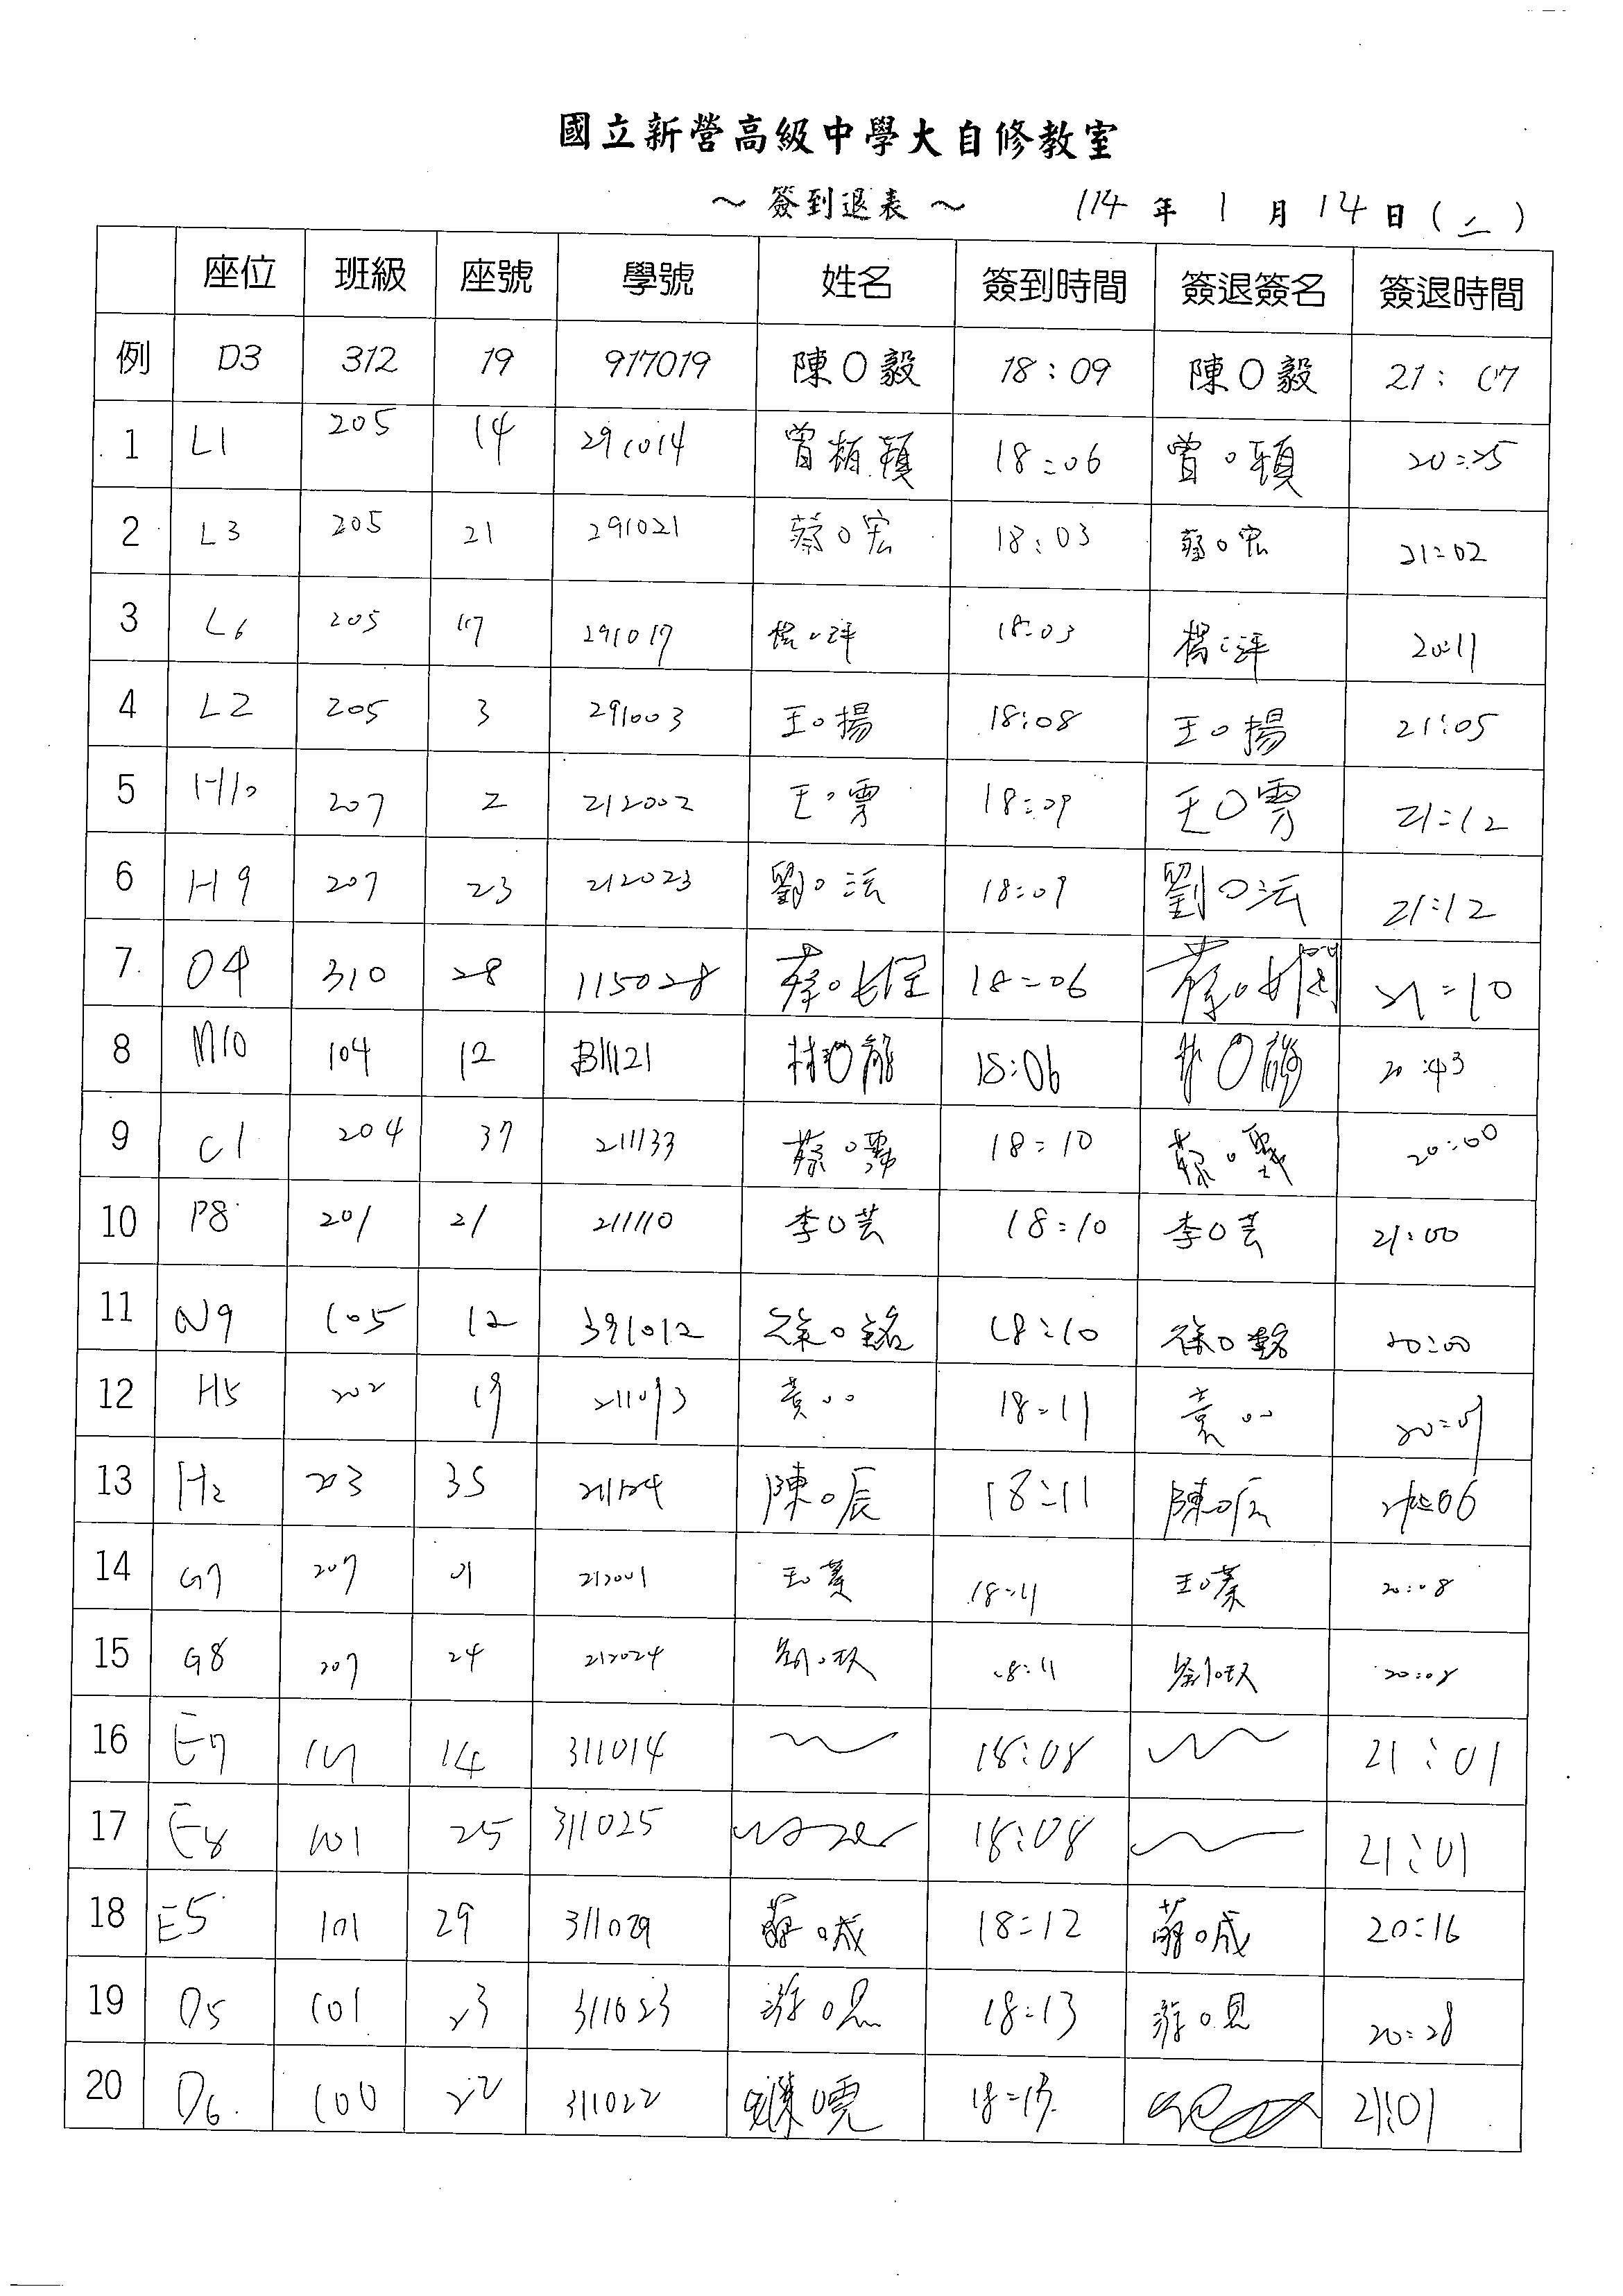 國立新營高級中學大自修教室
～ 簽到退表 ～ 114 年 1 月 14 日 (二)
座位 班級 座號 學號 姓名 簽到時間 簽退簽名 簽退時間
例 D3 312 19 917019 陳〇毅 18:09 陳〇毅 21:07
1 L1 205 14 291014 曾栢頴 18:06 曾〇頴 20:25
2 L3 205 21 291021 蔡〇宏 18:03 蔡〇宏 21:02
3 L6 205 17 291017 楊〇泙 18:03 楊〇泙 20:11
4 L2 205 3 291003 王〇揚 18:08 王〇揚 21:05
5 H10 207 2 212002 王〇雱 18:09 王〇雱 21:12
6 H9 207 23 212023 劉〇沄 18:09 劉〇沄 21:12
7 O4 310 28 115028 蔡〇 18:06 蔡〇 21:10
8 M10 104 12 林〇 18:06 〇 20:43
9 C1 204 37 211133 蔡〇 18:10 蔡〇 20:00
10 P8 201 21 211110 李〇芸 18:10 李〇芸 21:00
11 N9 105 12 391012 徐〇銘 18:10 徐〇銘 20:00
12 H5 202 19 211093 黃〇〇 18:11 黃〇〇 20:09
13 H2 203 35 陳〇辰 18:11 陳〇辰
14 G7 207 01 212001 王〇蓁 18:11 王〇蓁 20:08
15 G8 207 24 212024 劉〇玖 18:11 劉〇玖 20:08
16 E7 101 14 311014 18:08 21:01
17 E8 101 25 311025 18:08 21:01
18 E5 101 29 311029 蘇〇晟 18:12 蘇〇晟 20:16
19 D5 101 23 311023 游〇恩 18:13 游〇恩 20:28
20 D6 100 22 311022 〇霓 18:13 21:01